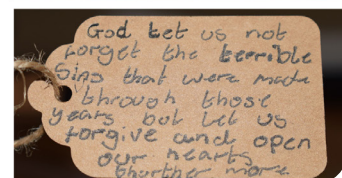 God Let us not
forget the terrible
Sins that were made
through those
years but Let us
forgive and open
our hearts
thurther more